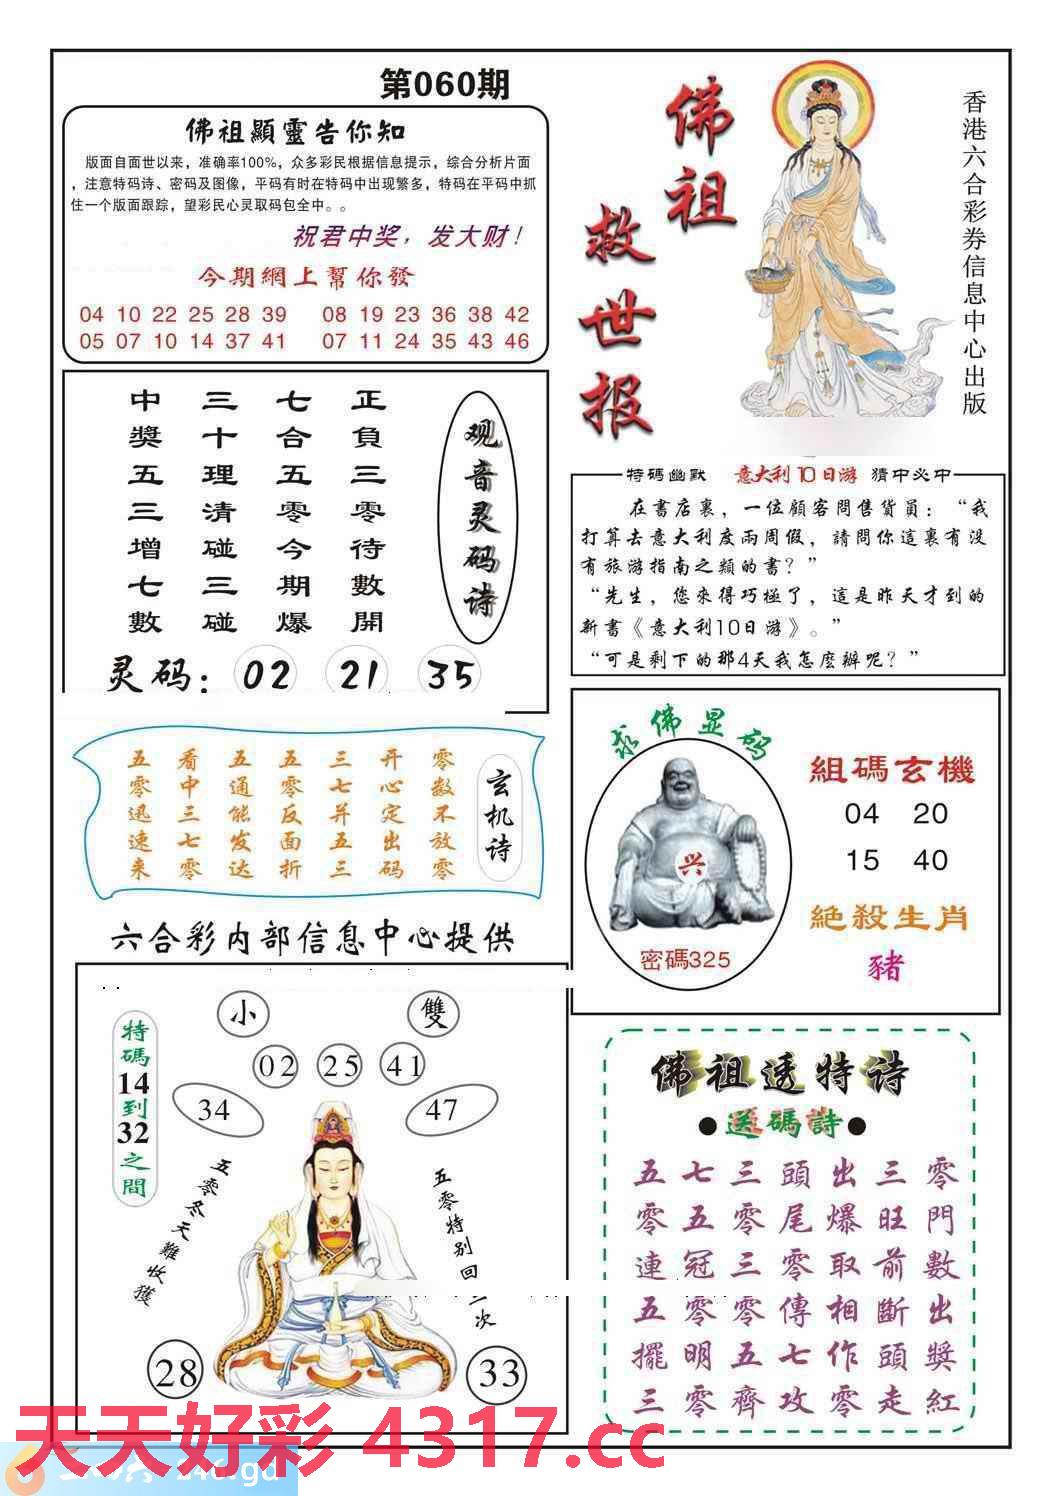 第060期
佛祖顯靈告你知
版面自面世以来，准确率100%，众多彩民根据信息提示，综合分析片面
，注意特码诗、密码及图像，平码有时在特码中出现繁多，特码在平码中抓
住一个版面跟踪，望彩民心灵取码包全中。。
祝君中奖，发大财！
今期網上幫你發
04 10 22 25 28 39 08 19 23 36 38 42
05 07 10 14 37 41 07 11 24 35 43 46
佛祖
救世报
香港六合彩券信息中心出版
观音灵码诗
正負三零待數開
七合五零今期爆
三十理清碰三碰
中獎五三增七數
灵码：02 21 35
特碼幽默 意大利10日游 猜中必中
在書店裏，一位顧客問售貨員：“我
打算去意大利度兩周假，請問你這裏有没
有旅游指南之類的書？”
“先生，您來得巧極了，這是昨天才到的
新書《意大利10日游》。”
“可是剩下的那4天我怎麽辦呢？”
玄机诗
零数不放零
开心定出码
三七并五三
五零反面折
五通能发达
看中三七零
五零迅速来
求佛显码
兴
密碼325
組碼玄機
04 20
15 40
絶殺生肖
豬
六合彩内部信息中心提供
特碼14到32之間
小 雙
02 25 41
34 47
五零冬天難收獲
五零特别回
次
28 33
佛祖透特诗
●送碼詩●
零門數出獎紅
三旺前斷頭走
出爆取相作零
頭尾零傳七攻
三零三零五齊
七五冠零明零
五零連五擺三
天天好彩 4317.cc